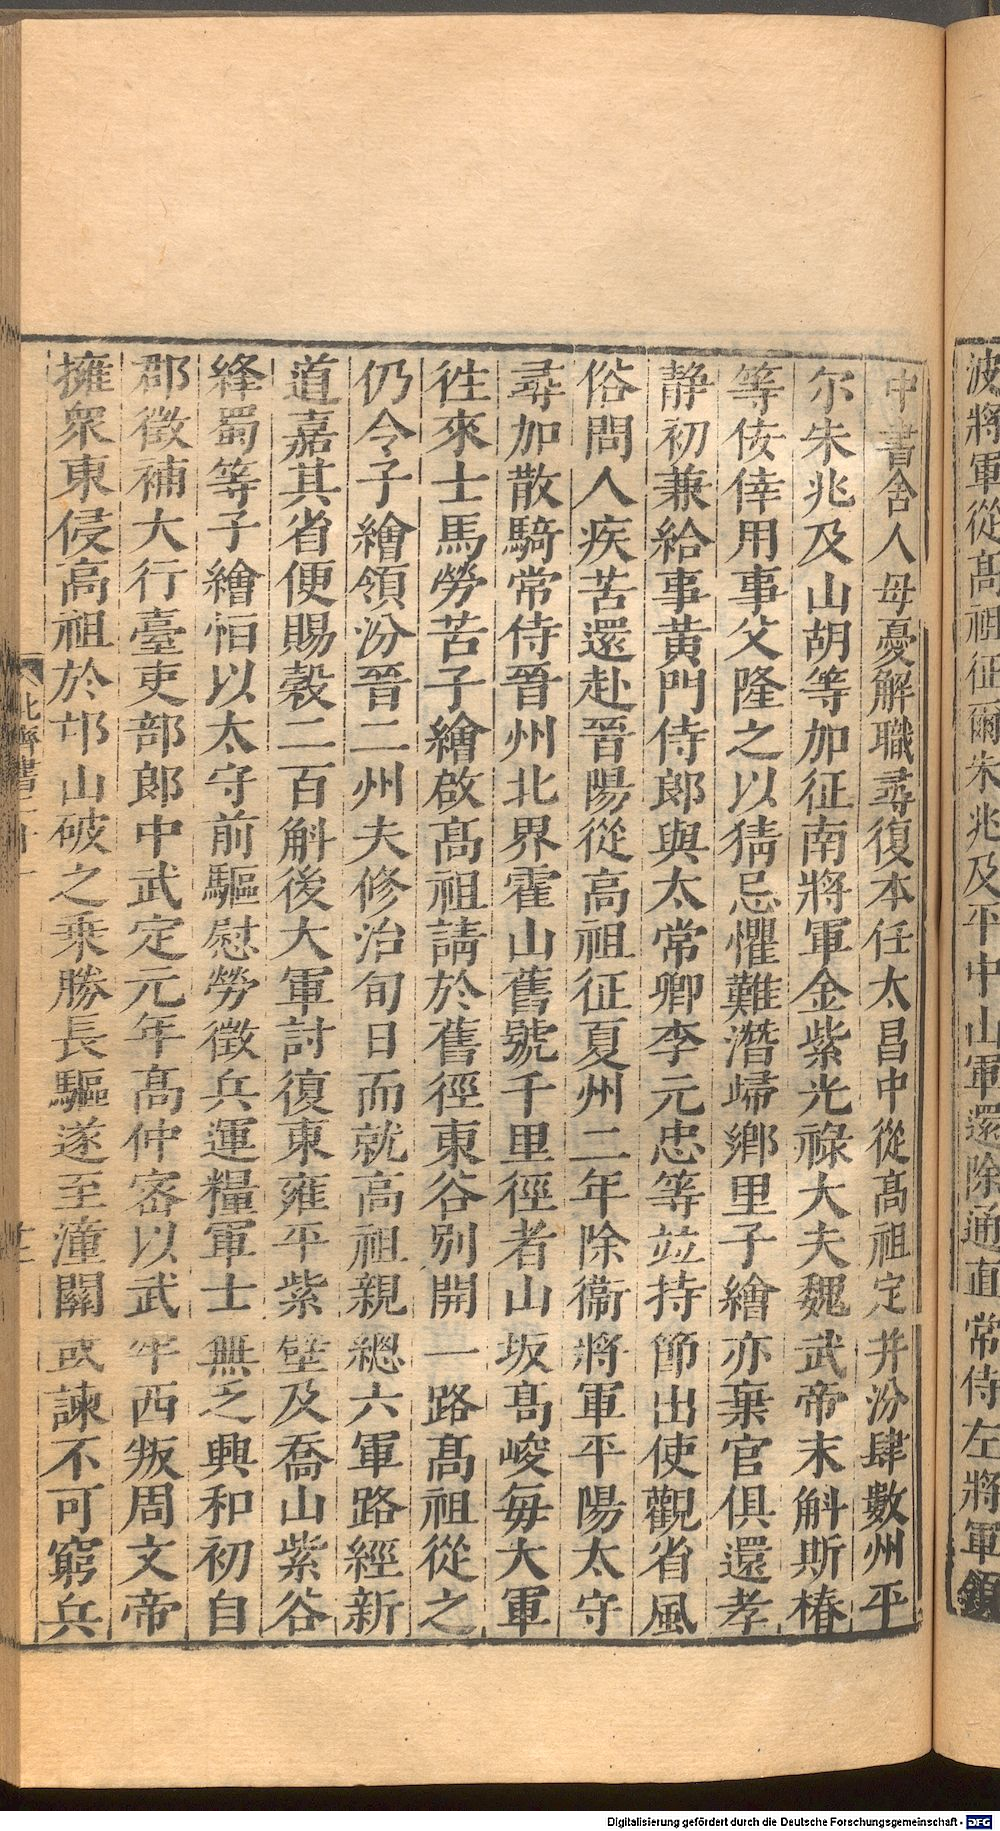 波將軍從髙祖征爾朱兆及平中山軍還除通直常侍左將軍領
中書舍人母憂解職尋復本任太昌中從髙祖定并汾肆數州平
尔朱兆及山胡等加征南將軍金紫光祿大夫魏武帝末斛斯椿
等佞倖用事父隆之以猜忌懼難潛歸鄉里子繪亦棄官俱還孝
静初兼給事黃門侍郎與太常卿李元忠等竝持節出使觀省風
俗問人疾苦還赴晉陽從高祖征夏州二年除衞將軍平陽太守
尋加散騎常侍晉州北界霍山舊號千里徑者山坂髙峻每大軍
徃來士馬勞苦子繪啟髙祖請於舊徑東谷別開一路髙祖從之
仍令子繪領汾晉二州夫修治旬日而就高祖親總六軍路經新
道嘉其省便賜穀二百斛後大軍討復東雍平紫壁及喬山紫谷
絳蜀等子繪恒以太守前驅慰勞徵兵運糧軍士無乏興和初自
郡徵補大行臺吏部郎中武定元年髙仲密以武牢西叛周文帝
擁衆東侵高祖於邙山破之乗勝長驅遂至潼關或諫不可窮兵
北齊書二十一